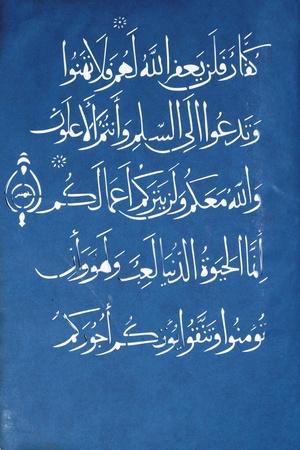 كفار فلن يغفر الله لهم فلا تهنوا
وتدعوا الى السلم وأنتم الأعلون
والله معكم ولن يتركم أعمالكم
انما الحيوة الدنيا لعب ولهو وان
تومنوا وتتقوا يوتكم أجوركم